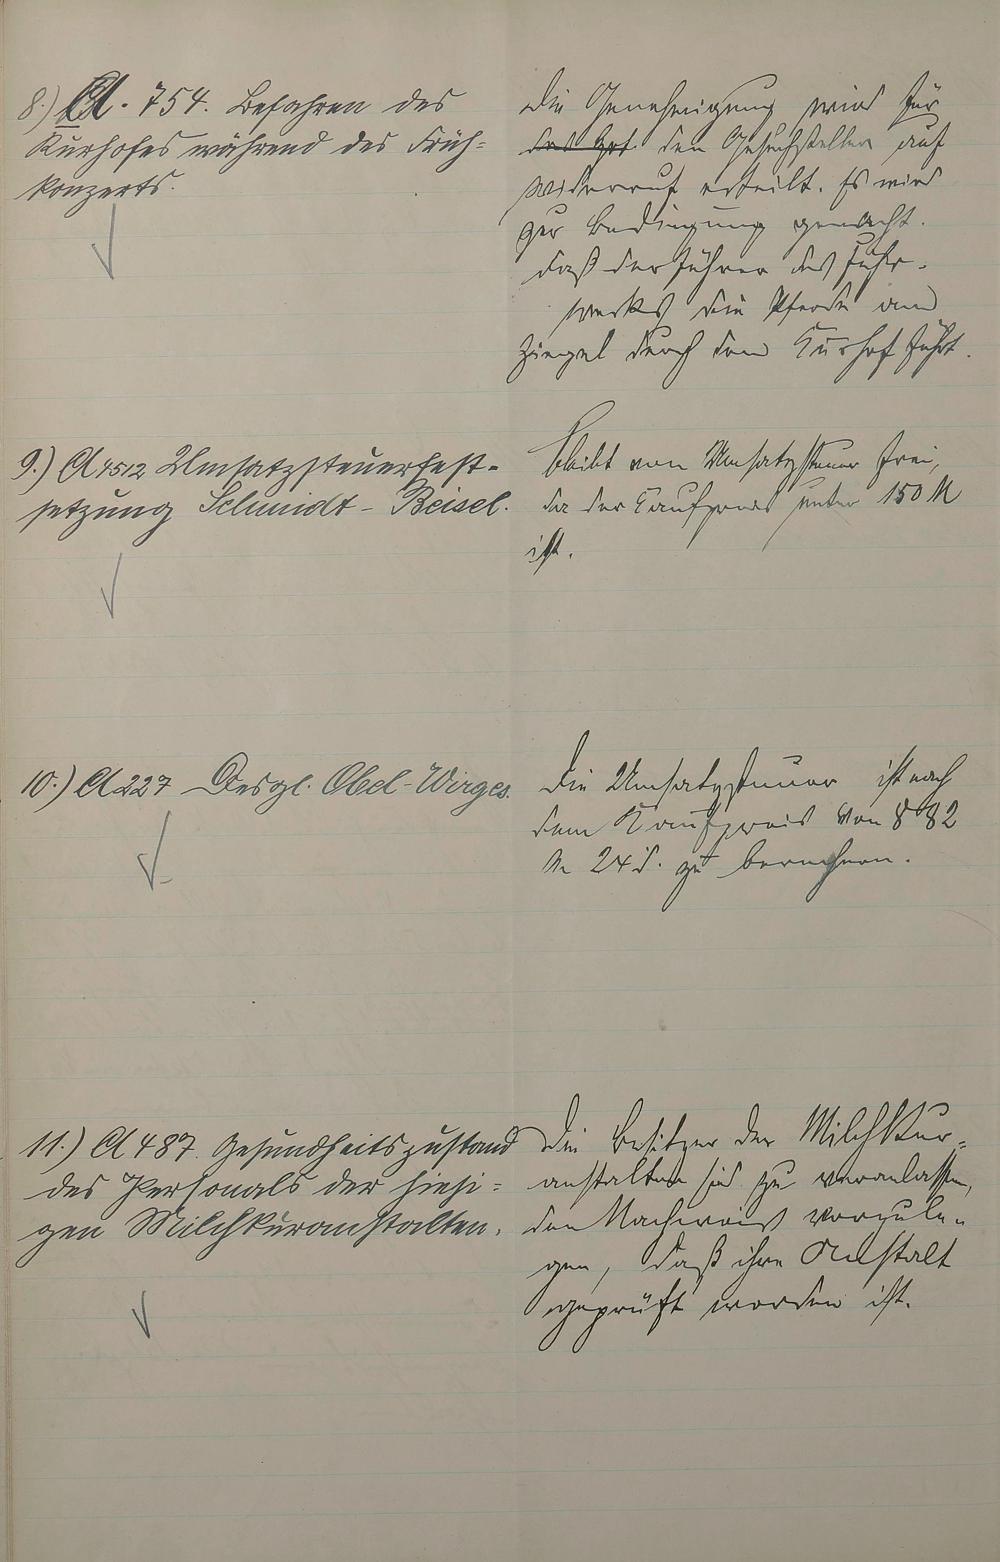 8.) A. 754. Befahren des
Kurhofes während des Früh-
konzerts.
Die Genehmigung wird für
den Gesuchsteller auf
Widerruf erteilt. Es wird
zur Bedingung gemacht.
daß der Führer des Fuhr-
werks die Pferde am
Zügel durch den Kurhof führt.
9.) A 4512 Umsatzsteuerfest-
setzung Schmidt-Beisel.
bleibt von Umsatzsteuer frei,
da der Kaufpreis unter 150 M
ist.
10.) A 227 Desgl. Abel-Wirges.
Die Umsatzsteuer ist nach
dem Kaufpreis von 882
M 24 d. zu berechnen.
11.) A 487. Gesundheitszustand
des Personals der hiesi-
gen Milchkuranstalten.
Die Besitzer der Milchkur-
anstalten sind zu veranlassen,
den Nachweis vorzule-
gen, daß ihre Anstalt
geprüft worden ist.